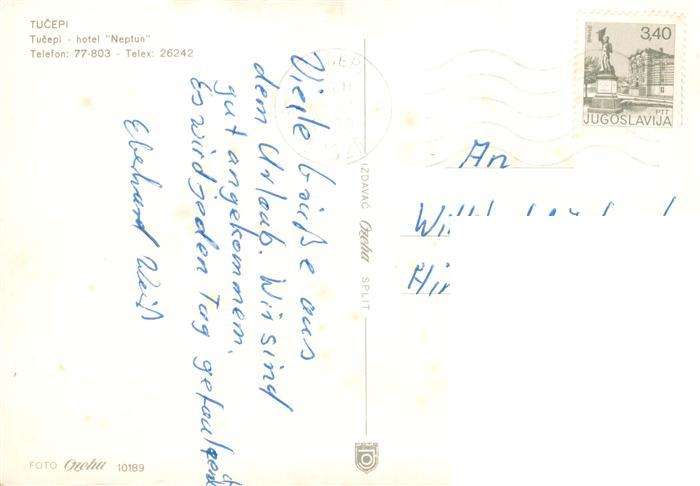 TUČEPI
Tučepi - hotel "Neptun"
Telefon: 77-803 - Telex: 26242
Viele Grüße aus
dem Urlaub. Wir sind
gut angekommen.
Es wird jeden Tag gefaulenzt
Eberhard Weiß
IZDAVAČ Ozeha SPLIT
3,40
PTT
JUGOSLAVIJA
An
FOTO Ozeha 10189